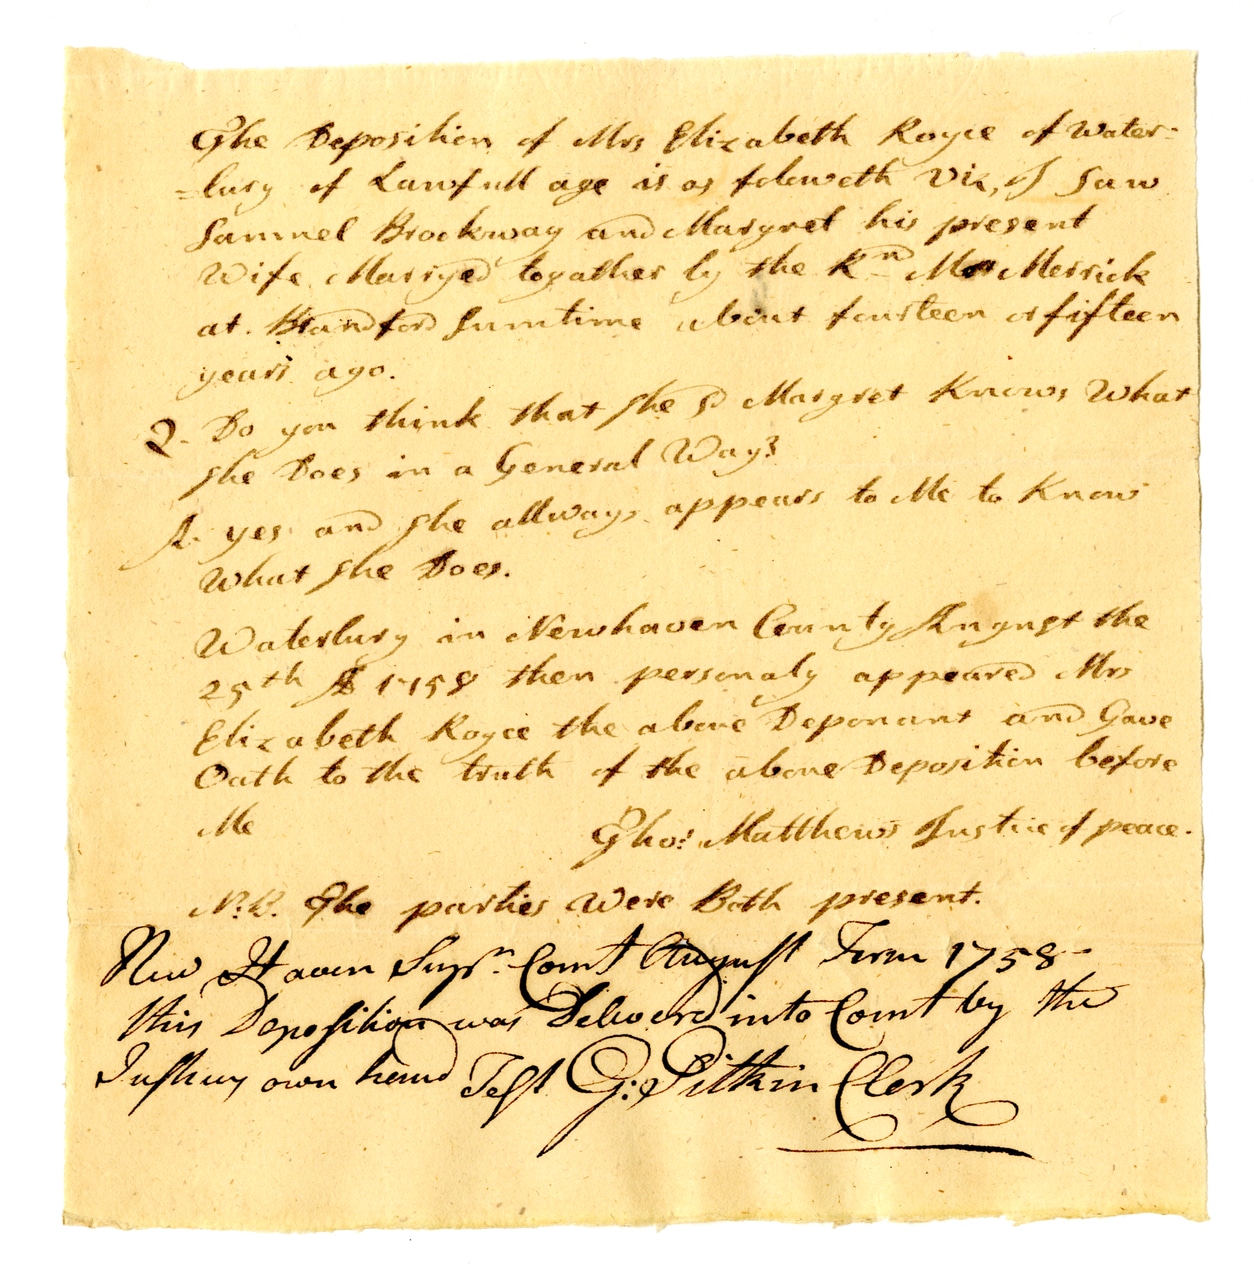 The Deposition of Mrs Elizabeth Royce of Water=
=bury of Lawfull age is as foloweth Viz, I Saw
Samuel Brockway and Margret his present
Wife Marryed togather by the Rn Mr Merrick
at Brandford Sumtime about fourteen or fifteen
years ago.
Q. Do you think that she sd Margret Knows What
she Does in a General Way?
A. yes and she allways appears to Me to Know
What she Does.
Waterbury in Newhaven County August the
25th AD 1758 then personaly appeared Mrs
Elizabeth Royce the above Deponant and Gave
Oath to the truth of the above Deposition before
Me
Tho:s Matthews Justice of peace.
N:B. The parties Were Both present.
New Haven Supr. Court August Term 1758-
this Deposition was Deliverd into Court by the
Justices own hand Test G: Pitkin Clerk